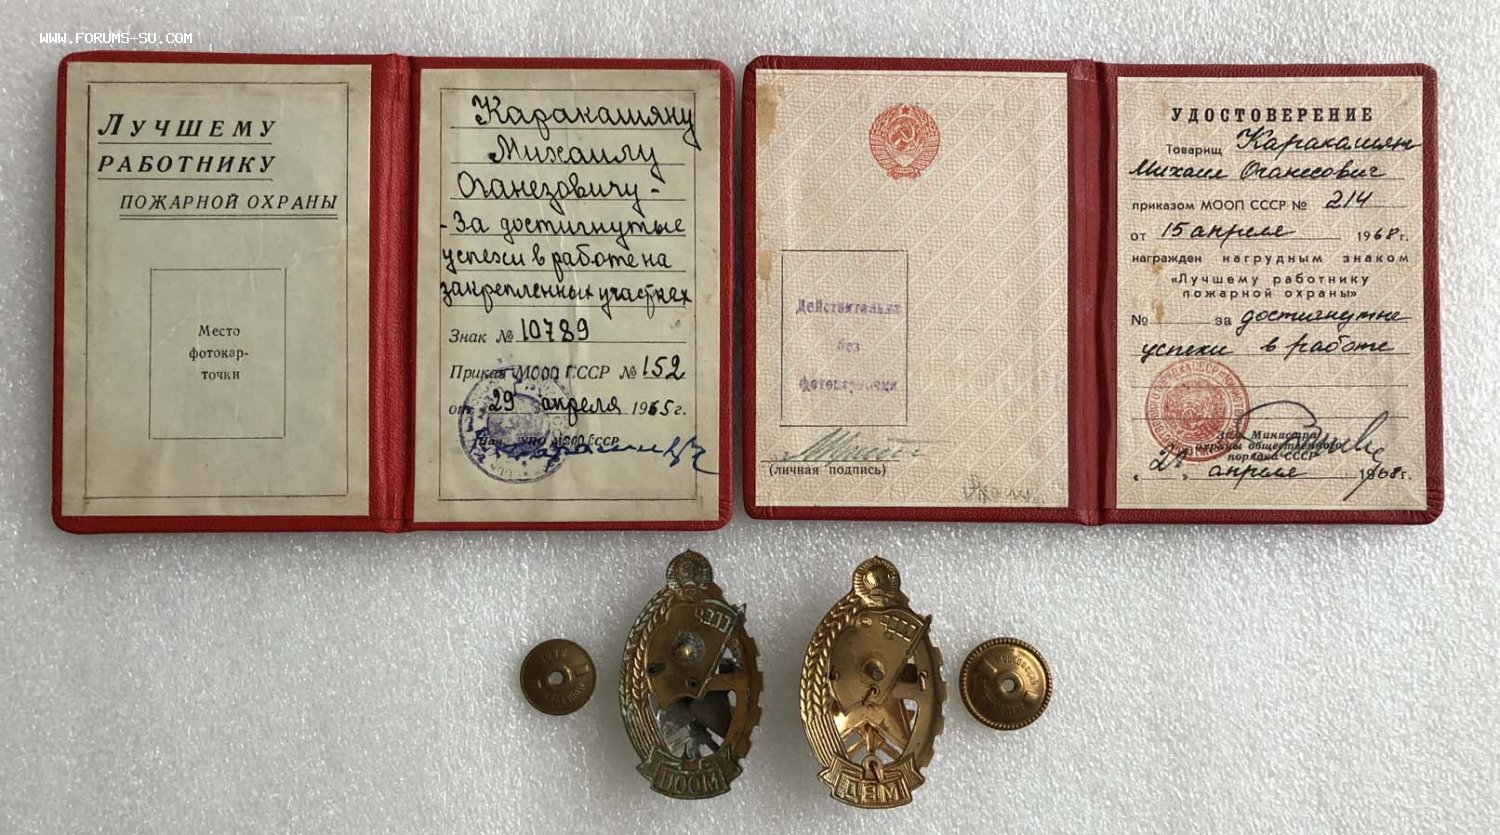 WWW.FORUMS-SU.COM
ЛУЧШЕМУ
РАБОТНИКУ
ПОЖАРНОЙ ОХРАНЫ
Место
фотокар-
точки
Каракашяну
Михаилу
Оганезовичу -
- За достигнутые
успехи в работе на
закрепленных участках
Знак № 10789
Приказ МООП ГССР № 152
от 29 апреля 1965 г.
УПО МООП ГССР
Действительно
без
фотокарточки
(личная подпись)
УДОСТОВЕРЕНИЕ
Товарищ Каракашян
Михаил Оганесович
приказом МООП СССР № 214
от 15 апреля 1968 г.
награжден нагрудным знаком
«Лучшему работнику
пожарной охраны»
№ за достигнутые
успехи в работе
Зам. Министра
охраны общественного
порядка СССР
апреля 1968 г.